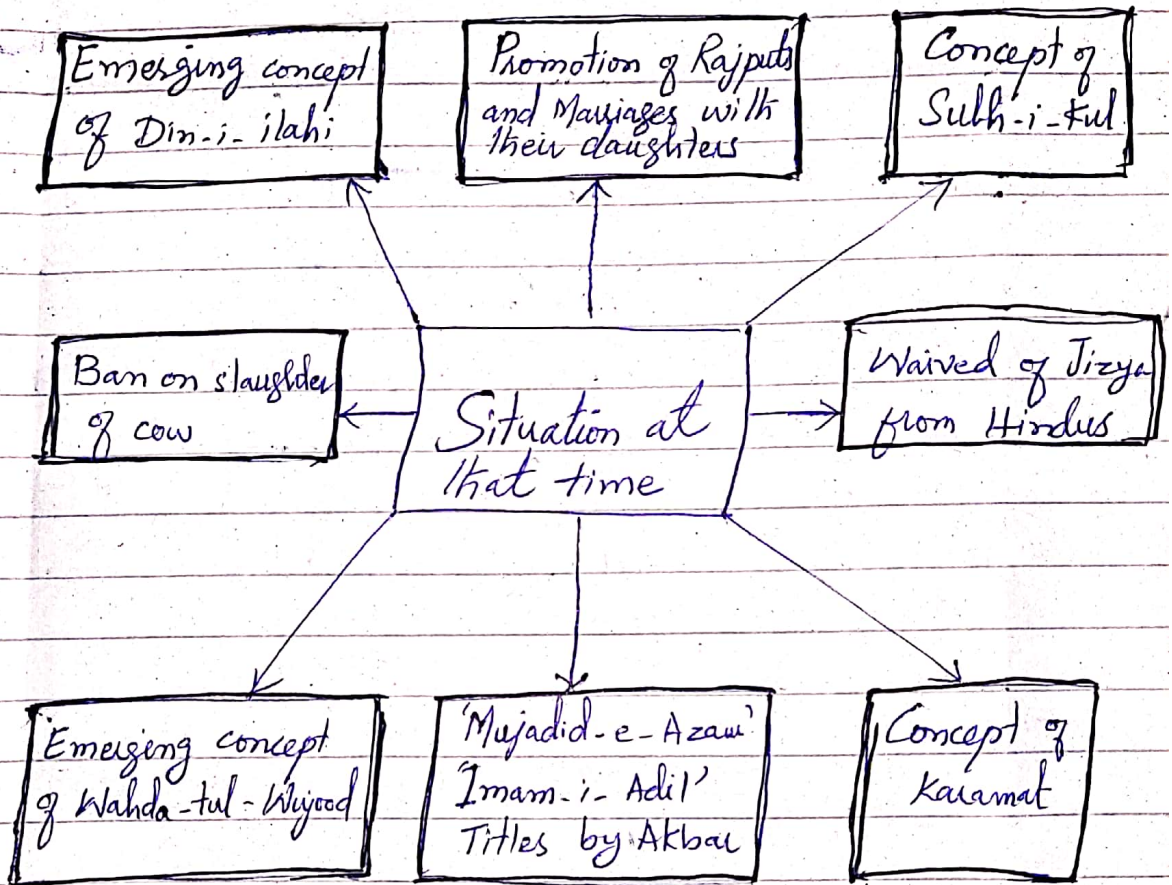 Emerging concept
of Din-i-ilahi
Promotion of Rajputs
and Marriages with
their daughters
Concept of
Sulh-i-kul
Ban on slaughter
of cow
Situation at
that time
Waived of Jizya
from Hindus
Emerging concept
of Wahda-tul-Wujood
'Mujadid-e-Azam'
'Imam-i-Adil'
Titles by Akbar
Concept of
Karamat